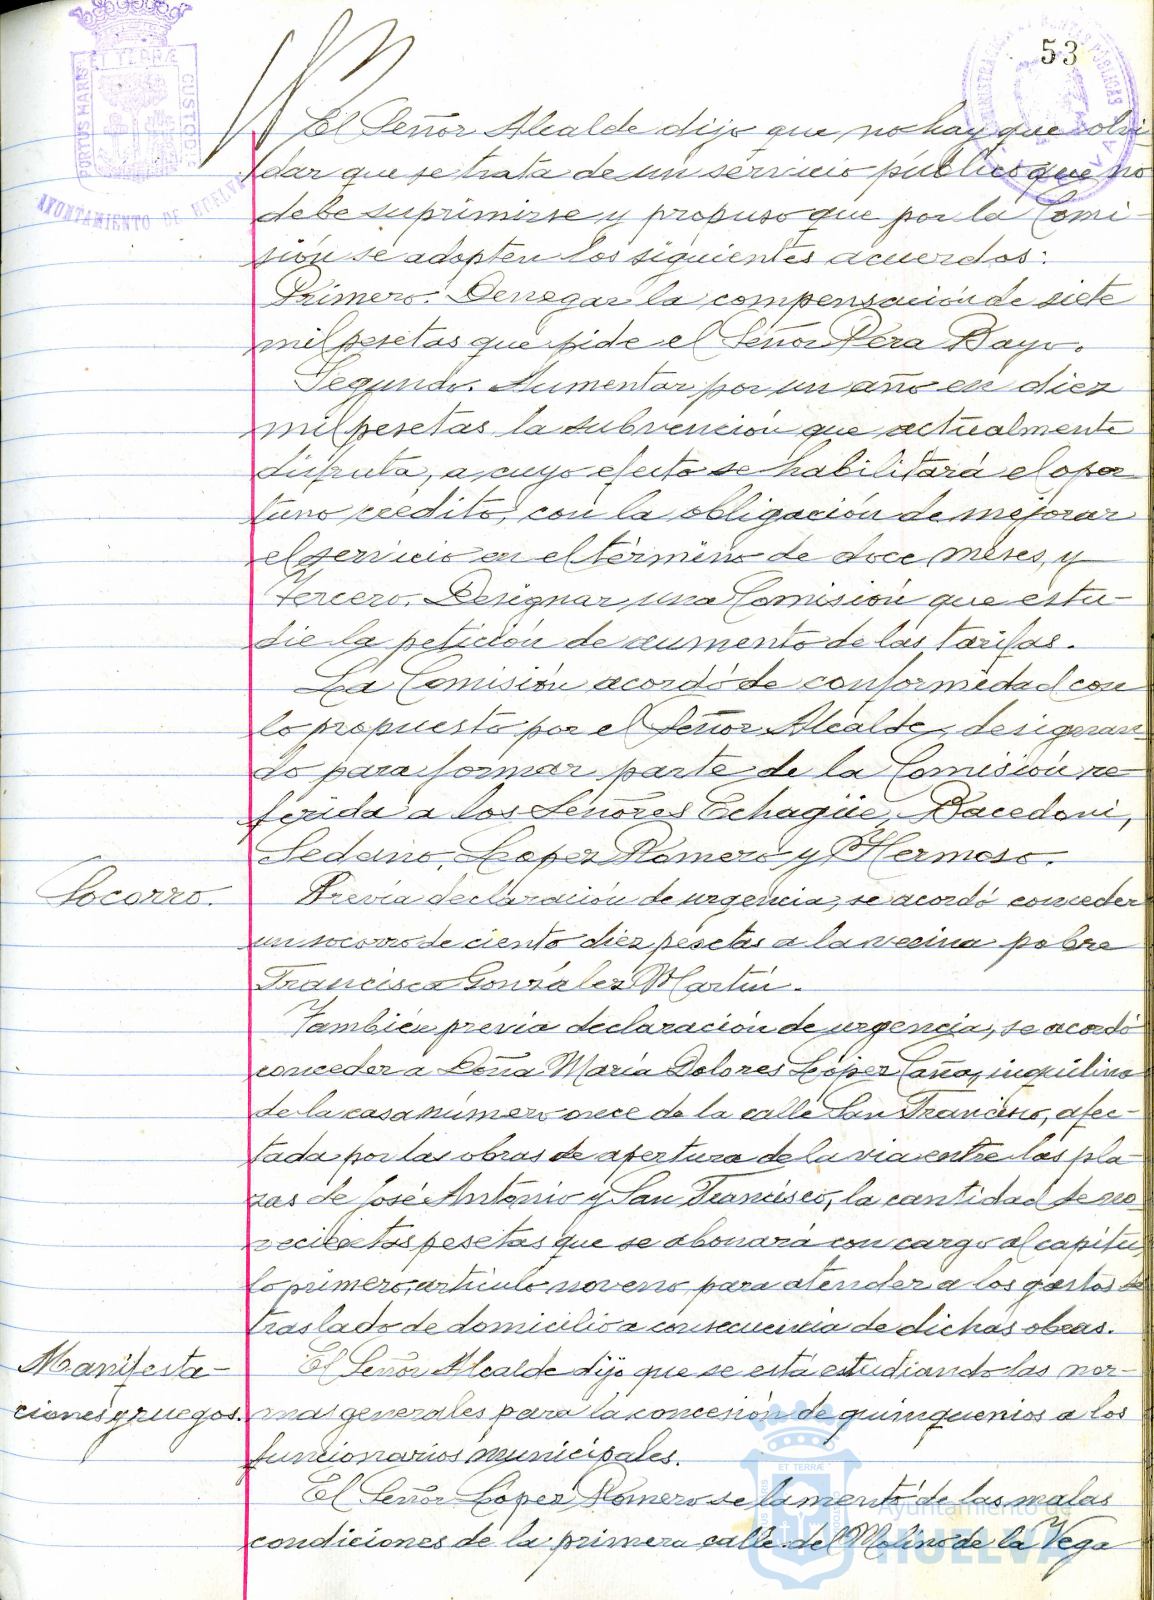 53
PORTUS MARIS ET TERRÆ CUSTODIA
AYUNTAMIENTO DE HUELVA
El Señor Alcalde dijo que no hay que olvi-
dar que se trata de un servicio público que no
debe suprimirse y propuso que por la Comi-
sión se adopten los siguientes acuerdos:
Primero. Denegar la compensación de siete
mil pesetas que pide el Señor Pera Bayo.
Segundo. Aumentar por un año en diez
mil pesetas la subvención que actualmente
disfruta, a cuyo efecto se habilitará el opor-
tuno crédito, con la obligación de mejorar
el servicio en el término de doce meses, y
Tercero. Designar una Comisión que estu-
die la petición de aumento de las tarifas.
La Comisión acordó de conformidad con
lo propuesto por el Señor Alcalde, designan-
do para formar parte de la Comisión re-
ferida a los Señores Echagüe, Bacedoni,
Sedano, Lopez Romero y Hermoso.
Socorro.
Previa declaración de urgencia, se acordó conceder
un socorro de ciento diez pesetas a la vecina pobre
Francisca González Martín.
También previa declaración de urgencia, se acordó
conceder a Doña María Dolores López Caña, inquilino
de la casa número once de la calle San Francisco, afec-
tada por las obras de apertura de la via entre las pla-
zas de José Antonio y San Francisco, la cantidad de no-
vecientas pesetas que se abonará con cargo al capítu-
lo primero, artículo noveno, para atender a los gastos de
traslado de domicilio a consecuencia de dichas obras.
Manifesta-
ciones y ruegos.
El Señor Alcalde dijo que se está estudiando las nor-
mas generales para la concesión de quinquenios a los
funcionarios municipales.
El Señor López Romero se lamentó de las malas
condiciones de la primera calle del Molino de la Vega
Ayuntamiento de
HUELVA